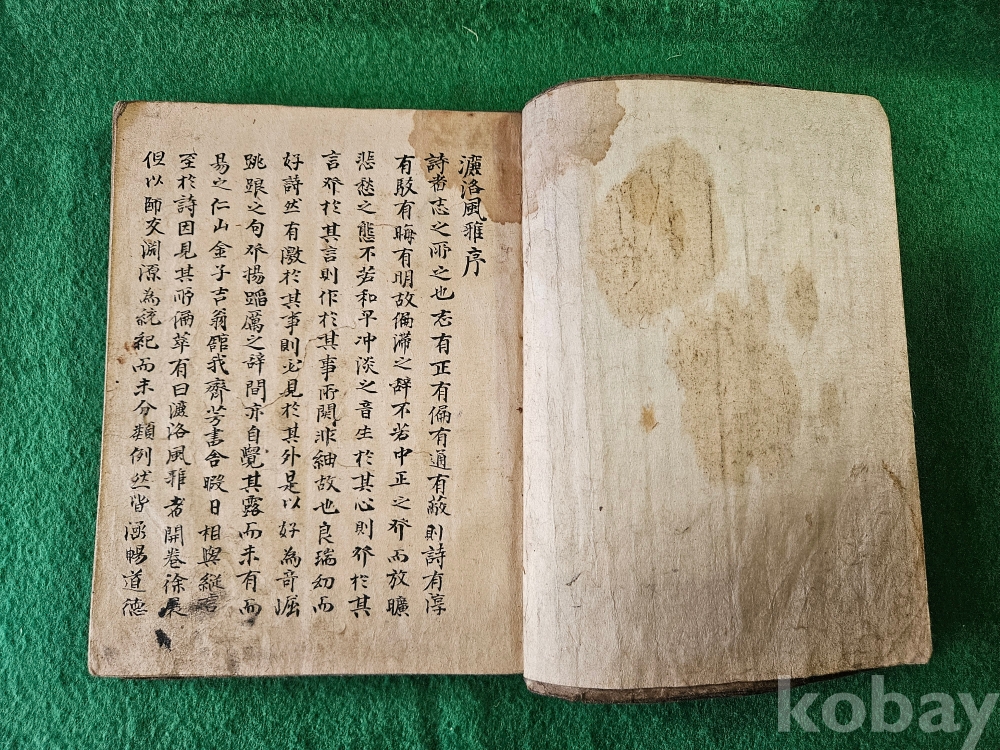 濂洛風雅序
詩者志之所之也志有正有偏有通有蔽則詩有淳
有駁有晦有明故偏滯之辞不若中正之發而放曠
悲愁之態不若和平冲淡之音生於其心則發於其
言發於其言則作於其事所関非紬故也良瑞幼而
好詩然有激於其事則必見於其外是以好為奇崛
跳踉之句發揚蹈厲之辞間亦自覺其露而未有而
易之仁山金子吉翁館我齊芳書舎暇日相與縱言
至於詩因見其所編萃有曰濂洛風雅者開卷徐展
但以師友淵源為統紀而未分類例然皆涵暢道德
kobay